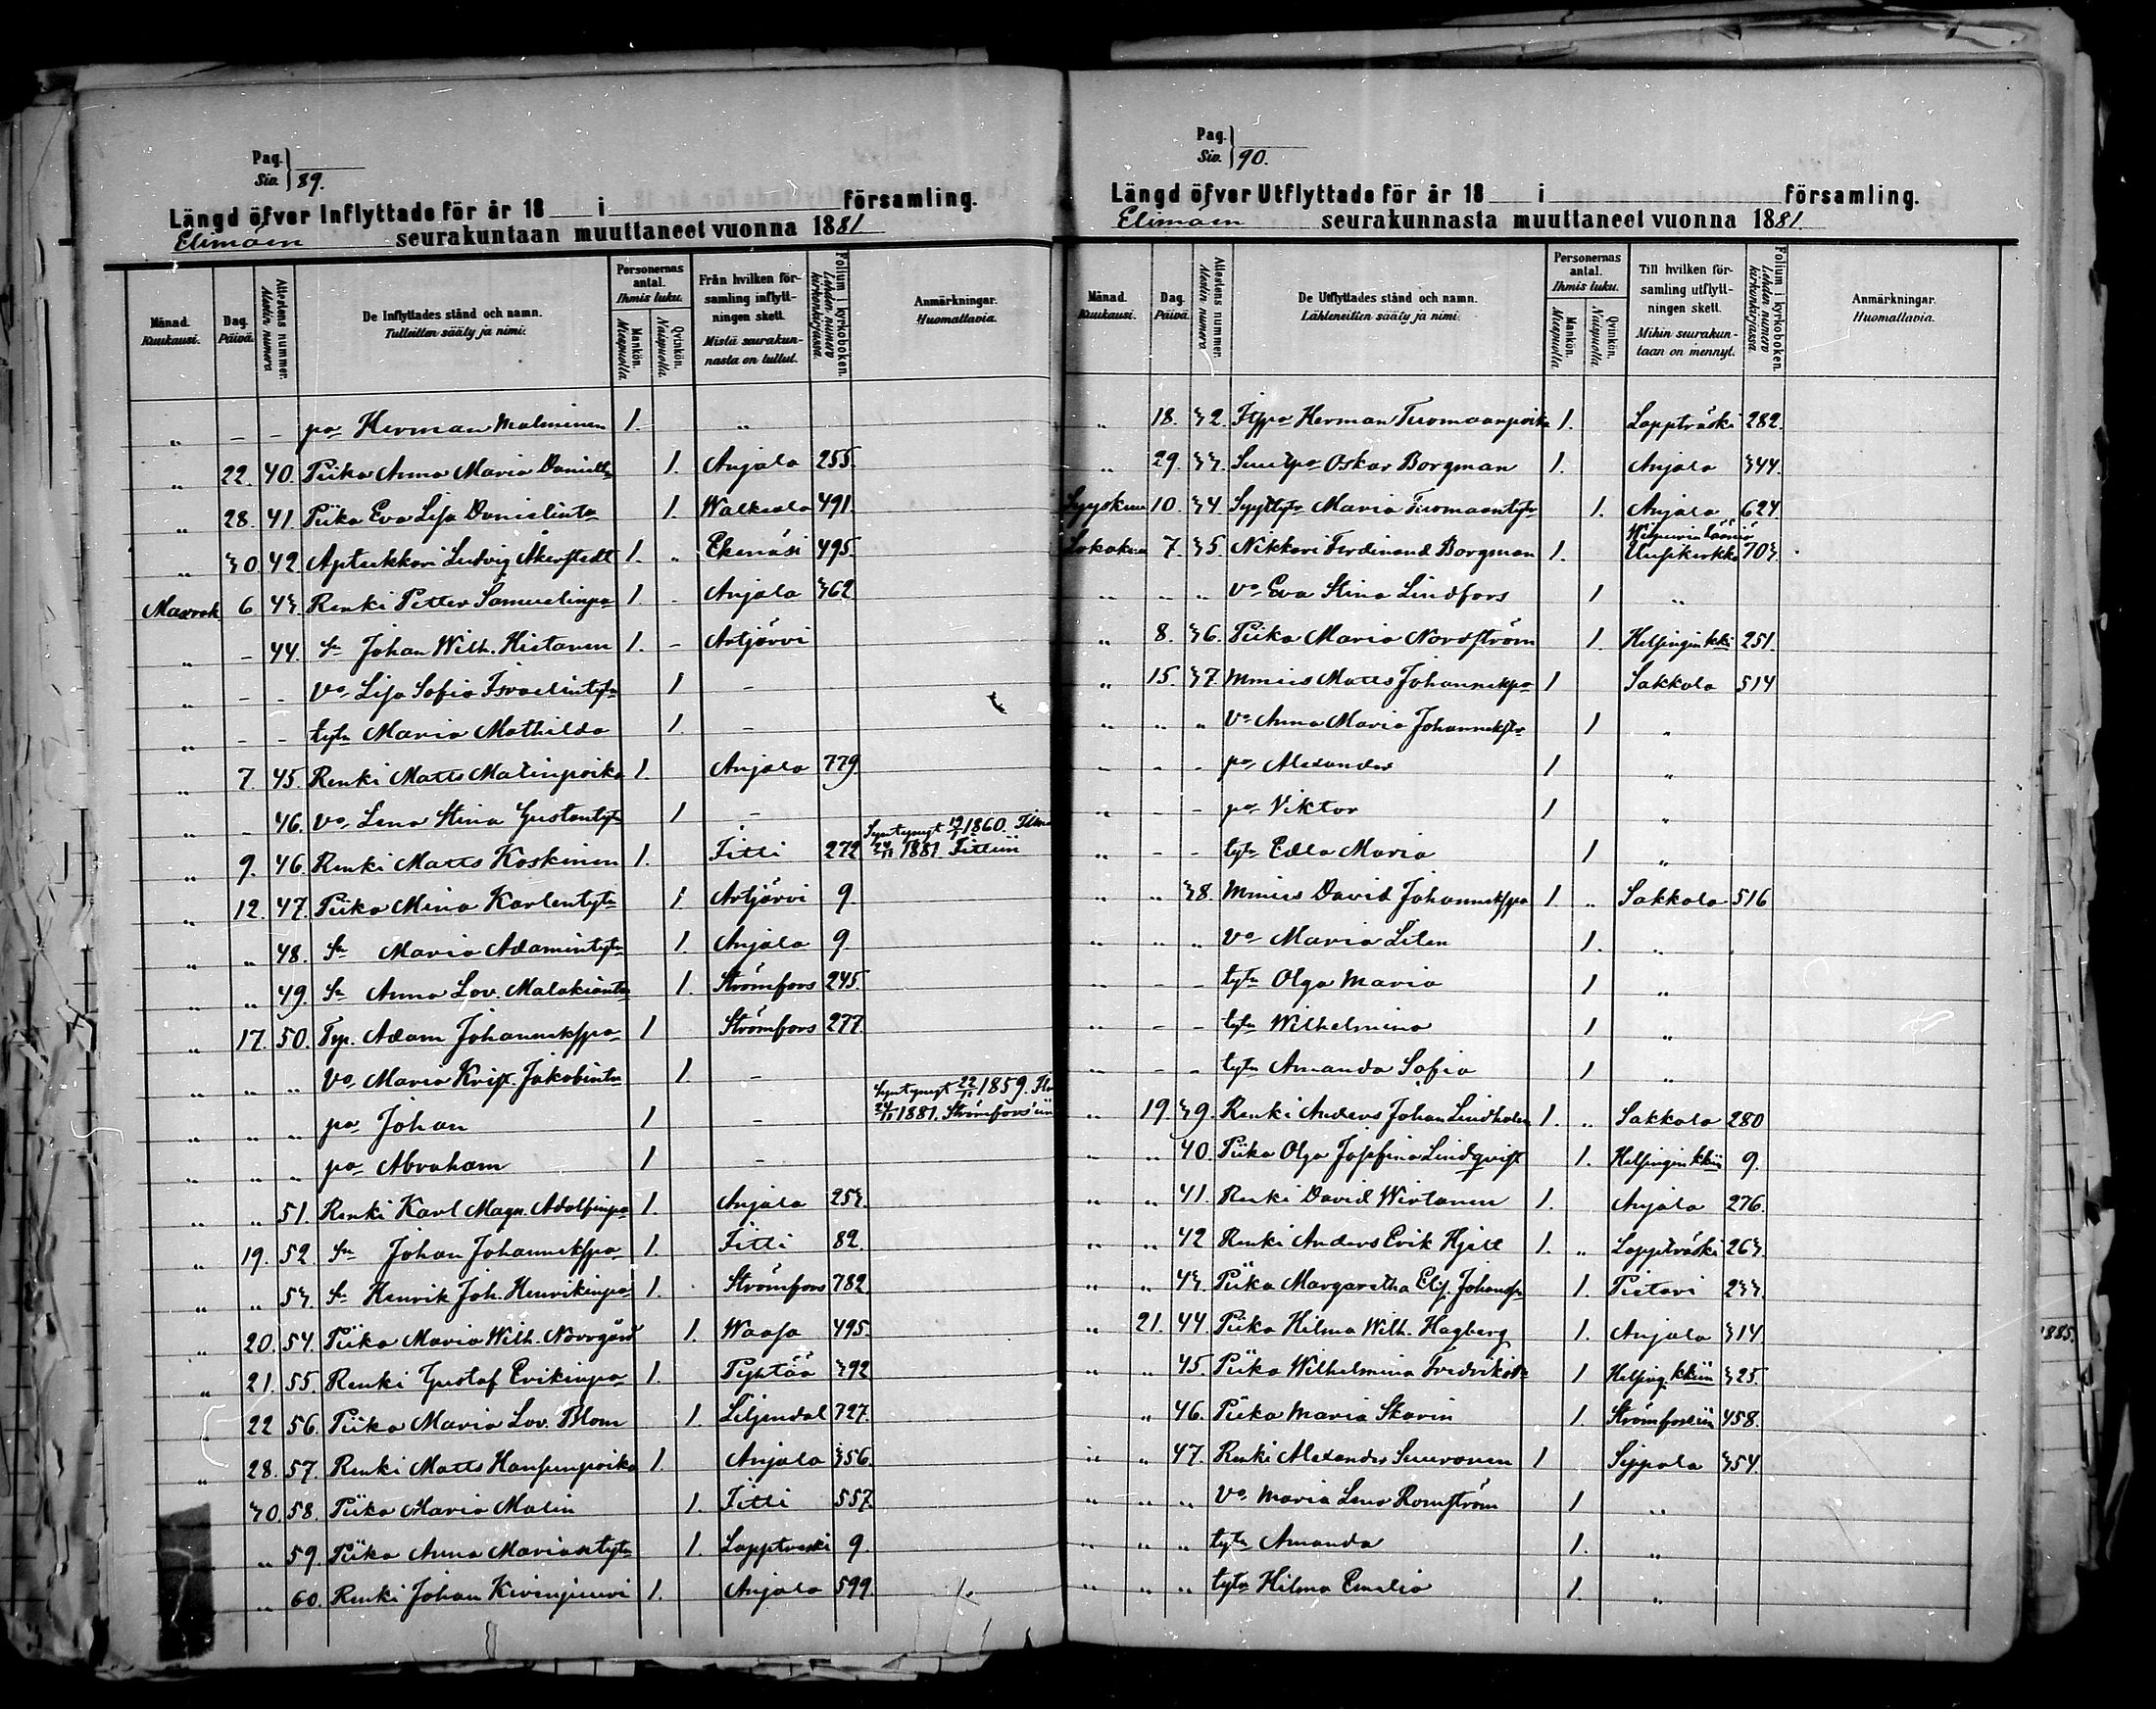 Pag.
Siv. 89.
Längd öfver Inflyttade för år 18 i församling.
Elimäen seurakuntaan muuttaneet vuonna 1881
Månad. Kuukausi. Dag. Päivä. Attestens nummer. Nestin numero De Inflyttades stånd och namn. Tulleitten sääty ja nimi. Personernas antal. Ihmis luku. Mankön. Miespuolia Qvinkön. Naispuolia. Från hvilken församling inflyttningen skett. Mistä seurakunnasta on tullut. Folium i kyrkoboken. Lehden numero kirkonkirjassa. Anmärkningar. Huomattavia.
„ - - po Herman Malminen 1. „
„ 22. 40. Piika Anna Maria Danielltr 1. Anjala 255.
„ 28. 41. Piika Eva Lisa Danielintr 1. Walkeala 491.
„ 30. 42. Aptekkari Ludvig Åkerstedt 1. „ Ekenäsi 495.
Marrask 6 43. Renki Petter Samuelinpo 1. - Anjala 362
„ - 44. Sn Johan Wilh. Hietanen 1. - Artjärvi
„ - - Vo Lisa Sofia Israelintytr 1 -
„ - - tytr Maria Mathilda 1. -
„ 7. 45. Renki Matts Matinpoika 1. Anjala 779.
„ - 46. Vo Lena Stina Gustantytr 1 -
„ 9. 46. Renki Matts Koskinen 1. Iitti 272 Syntynyt 19/1 1860. 24/11 1881 Iittiin
„ 12. 47. Piika Mina Karlentytr 1 Artjärvi 9.
„ „ 48. Sn Maria Adamintytr 1. Anjala 9.
„ „ 49. Sn Anna Lov. Malakiantr 1. Strömfors 245.
„ 17. 50. Typ. Adam Johanneksspo 1 Strömfors 277.
„ „ „ Vo Maria Krist. Jakobintr 1. -
„ „ „ po Johan 1 - Syntynyt 22/11 1859. 24/11 1881. Strömfors'iin
„ „ „ po Abraham 1 -
„ „ 51. Renki Karl Magn. Adolfinpo 1. Anjala 253.
„ 19. 52. Sn Johan Johanneksspo 1. Iitti 82.
„ „ 53. Sn Henrik Joh. Henrikinpo 1. Strömfors 782.
„ 20. 54. Piika Maria Wilh. Norrgård 1. Waasa 495.
„ 21. 55. Renki Gustaf Erikinpo 1. Pyhtää 392
„ 22 56. Piika Maria Lov. Blom 1. Liljendal 727.
„ 28. 57. Renki Matts Hansunpoika 1. Anjala 356.
30. 58. Piika Maria Malin 1. Iitti 557.
„ 59. Piika Anna Mariantytr 1. Lapptreski 9.
„ 60. Renki Johan Kivenjuuri 1. Anjala 599.
Pag.
Siv. 90.
Längd öfver Utflyttade för år 18 i församling.
Elimäen seurakunnasta muuttaneet vuonna 1881.
Månad. Kuukausi. Dag. Päivä. Attestens nummer. Nestin numero De Utflyttades stånd och namn. Lähteneitten sääty ja nimi. Personernas antal. Ihmis luku. Mankön. Miespuolia Qvinkön. Naispuolia Till hvilken församling utflyttningen skett. Mihin seurakuntaan on mennyt. Folium i kyrkoboken. Lehden numero kirkonkirjassa. Anmärkningar. Huomattavia.
„ 18. 32. Herman Tuomaanpoika 1. Lappträski 282.
„ 29. 33. Oskar Borgman 1. Anjala 344.
Syyskuu 10. 34. Maria Tuomaantytr 1. Anjala 624.
Wiipurin Läänin
Lokakuu 7. 35. Nikkari Ferdinand Borgman 1. Uusikirkko 703.
„ „ „ Vo Eva Stina Lindfors 1 „
„ 8. 36. Piika Maria Nordström 1. Helsingin kki 251.
„ 15. 37. Mmies Matts Johannekspo 1 Sakkola 514
„ „ „ Vo Anna Maria Johannekstr 1 „
- - - po Alexander 1 „
„ - - po Viktor 1 „
„ - - tytr Edla Maria 1 „
„ „ 38. Mmies David Johanneksspo 1. „ Sakkola 516
„ „ „ Vo Maria Liten 1. „
„ - - tytr Olga Maria 1 „
„ - - tytr Wilhelmina 1 „
„ - - tytr Amanda Sofia 1 „
„ 19. 39. Renki Anders Johan Lindholm 1. „ Sakkola 280
- „ 40. Piika Olga Josefina Lindqvist 1. Helsingin kkiin 9.
„ „ 41. Renki David Wirtanen 1. Anjala 276.
„ „ 42 Renki Anders Erik Hjelt 1. „ Lappträski 263.
„ „ 43. Piika Margaretha Elis. Johanstr 1. Pietari 233.
„ 21. 44 Piika Hilma Wilh. Hagberg 1. Anjala 314
„ „ 45. Piika Wilhelmina Fredrikintr 1 Helsing. kkiin 325.
„ 46. Piika Maria Skarin 1. Strömforsiin 458.
„ „ 47. Renki Alexander Suuronen 1 Sippola 354.
„ „ „ Vo Maria Lena Romström 1 „
„ „ „ tytr Amanda 1. „
„ „ „ tytr Hilma Emelia 1. „
1885.